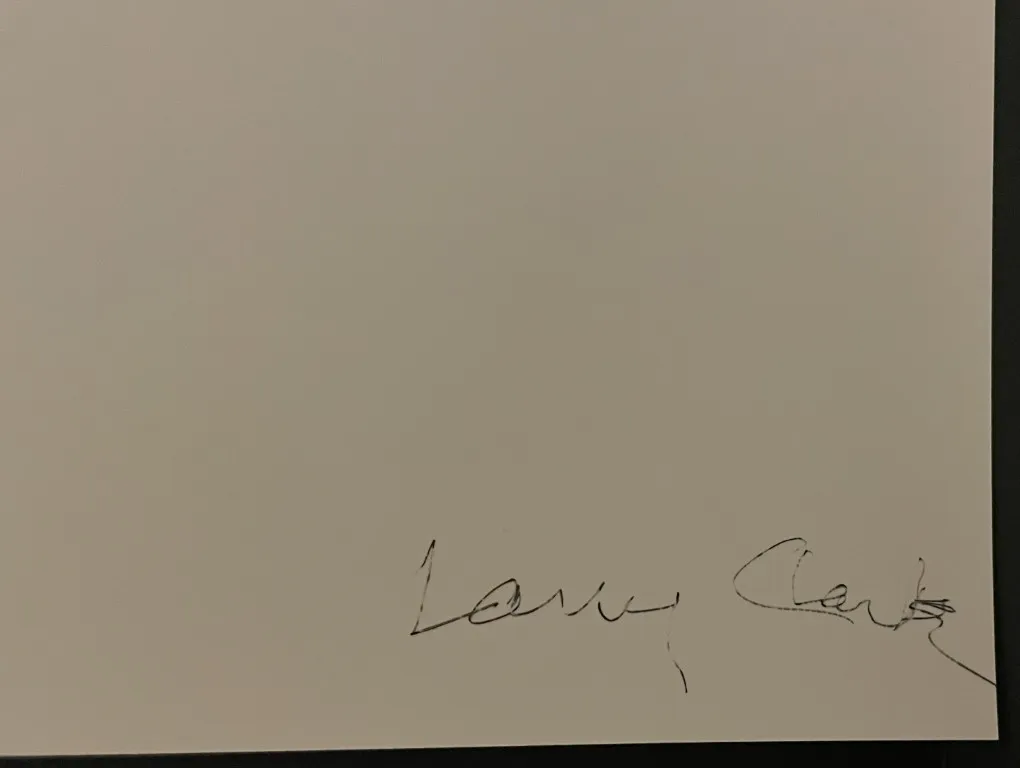 Larry Clark